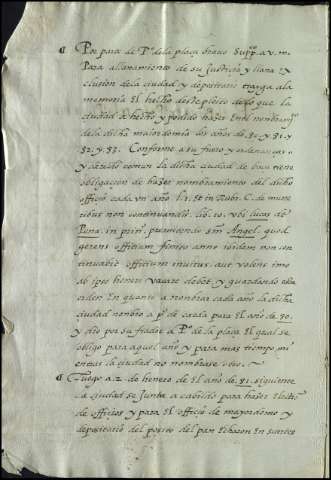 ¶ Por parte de P.º de la plaça bravo Supp.ca a v. m.
Para allanamiento de su Justicia y llana
clusion de la ciudad y depositario traiga a la
memoria El hecho deste pleito de lo que la
ciudad a hecho y podido hazer En el nombram.to
de la dicha maiordomia los años de 80. y 81. y
82. y 83. Conforme a su fuero y ordenanças
y sentido comun la dicha ciudad de tiene
obligacion de hazer nombramiento del dicho
officio cada un año l. 1. et in Rubr. C. de mune
ribus non continuandis lib. 10. ubi lucas de
Pena. in prin. premitendo sin. Angel. quod
gerens offitium finito anno ibidem non con
tinuabit offitium invitus aut volens imo
ab ipso honere vacare debet y guardando esta
orden En quanto a nonbrar cada año la dicha
ciudad nonbro a p.º de para El año de 80.
y dio por su fiador a P.º de la plaça El qual se
obligo para aquel año y para mas tiempo mi
entras la ciudad no nombrase otro ~
¶ Luego a 2. de henero de El año de 81. siguiente
la ciudad se Junta a cabildo para hazer Electio
de officios y para El officio de mayordomo y
depositario del posito del pan Echaron En suertes